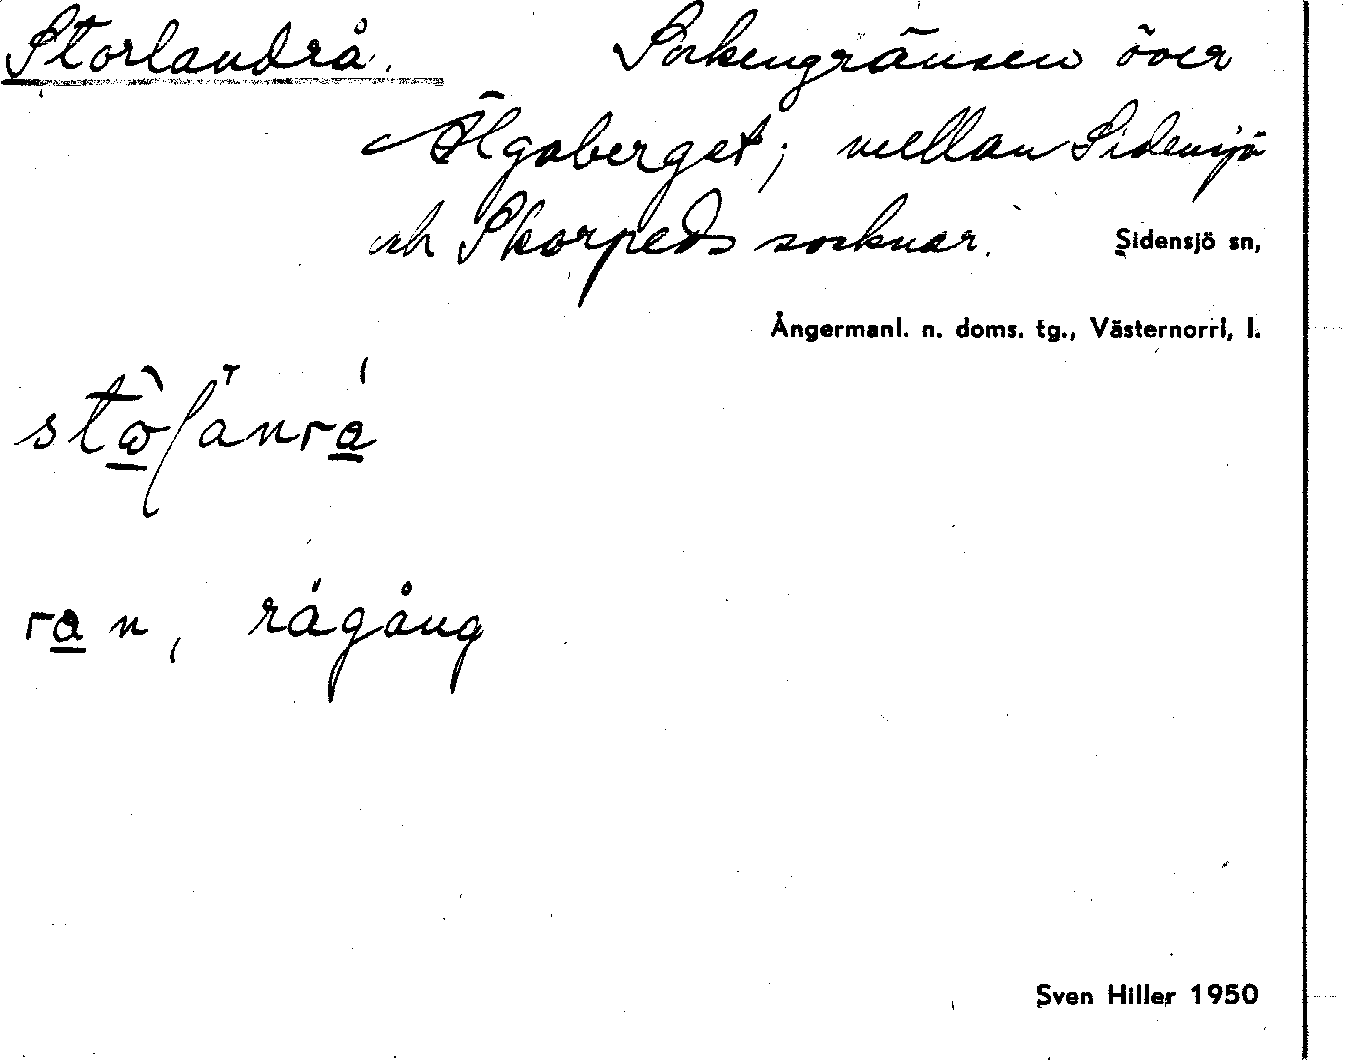 Storlandrå. Sockengränsen över
Älgaberget; mellan Sidensjö
och Skorpeds socknar. Sidensjö sn,
Ångermanl. n. doms. tg., Västernorrl, l.
ra n, rågång
Sven Hiller 1950